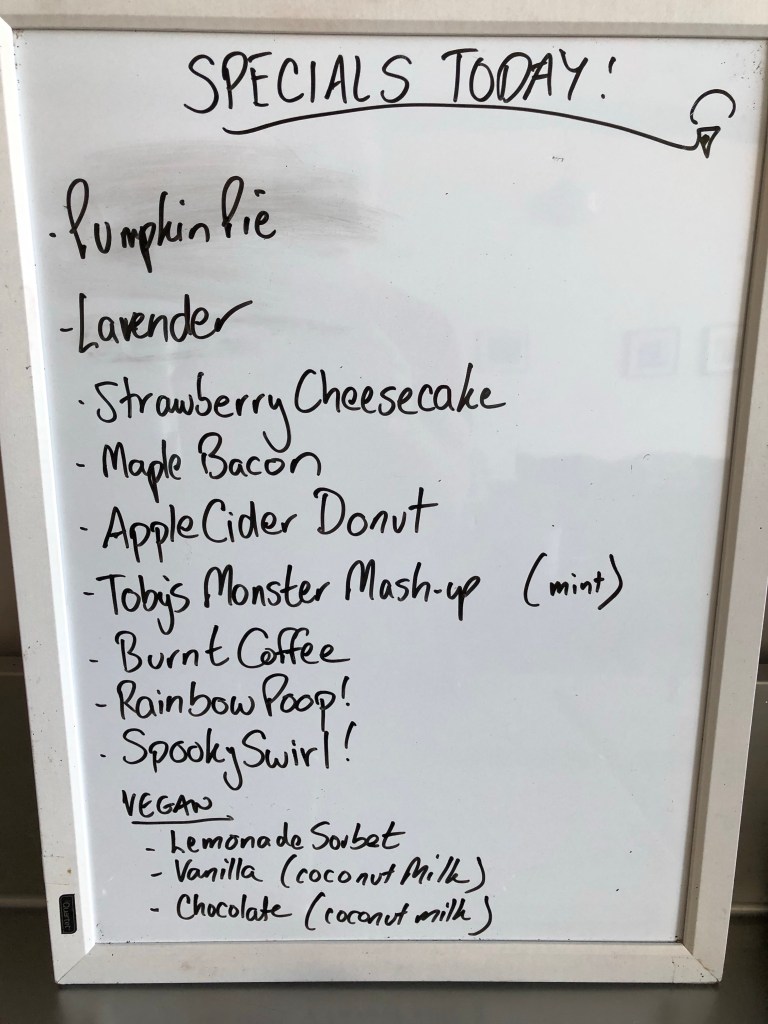 SPECIALS TODAY!
· Pumpkin Pie
- Lavender
· Strawberry Cheesecake
- Maple Bacon
- Apple Cider Donut
- Toby's Monster Mash-up (mint)
- Burnt Coffee
- Rainbow Poop!
· Spooky Swirl!
VEGAN
- Lemonade Sorbet
- Vanilla (coconut Milk)
- Chocolate (coconut milk)
Quartet